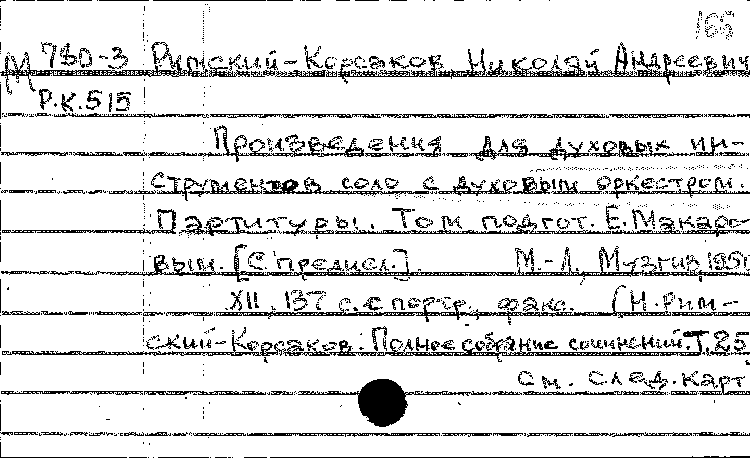 165
М 780-3 Римский-Корсаков, Николай Андреевич
Р.К.515
Произведения для духовых ин-
струментов соло с духовым оркестром.
Партитуры. Том подгот. Е. Макаро-
вым. [С предисл.]. М.-Л., Музгиз, 1950
XII, 137 с. с портр., факс. (Н. Рим-
ский-Корсаков. Полное собрание сочинений. Т. 25
См. след. карт